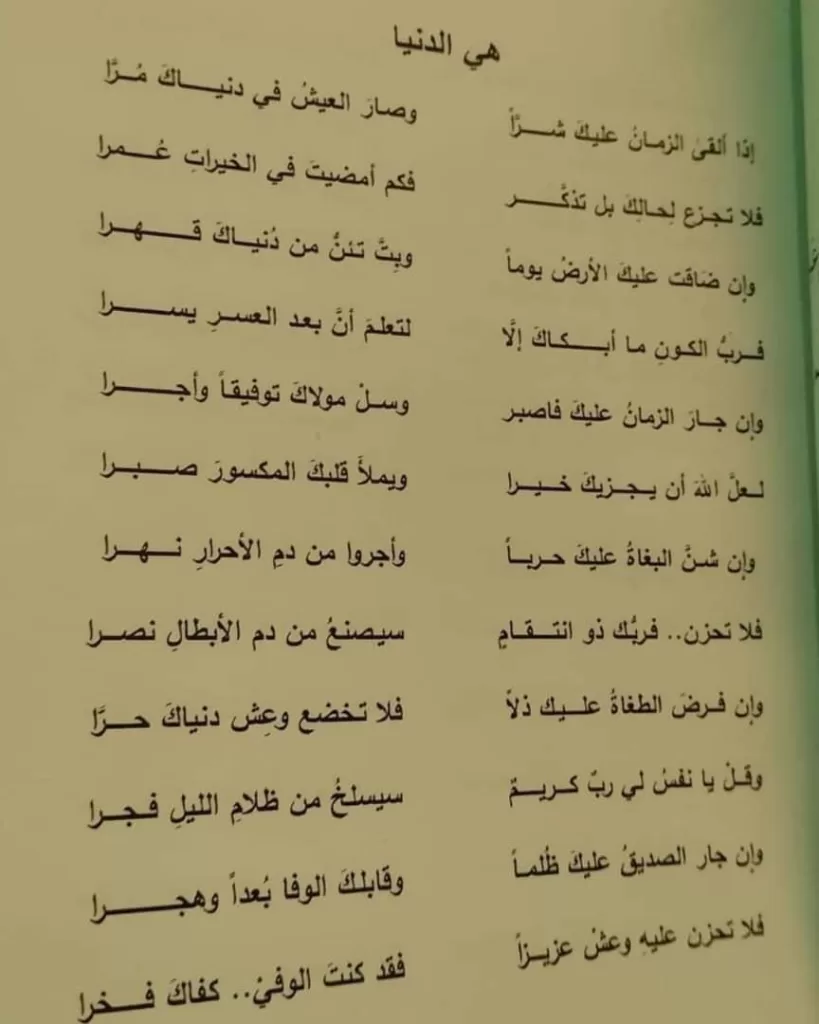 هي الدنيا
إذا ألقىٰ الزمانُ عليكَ شــرَّاً وصارَ العيشُ في دنيــاكَ مُــرَّا
فلا تجزع لِحالِكَ بل تذكَّــر فكم أمضيتَ في الخيراتِ عُــمرا
وإن ضَاقت عليكَ الأرضُ يوماً وبِتَّ تئنُّ من دُنياكَ قــهــرا
فــربُّ الكونِ ما أبــكاكَ إلَّا لتعلمَ أنَّ بعد العسرِ يســـرا
وإن جــارَ الزمانُ عليكَ فاصبر وســلْ مولاكَ توفيقاً وأجــرا
لــعلَّ اللهَ أن يــجــزيكَ خــيــرا ويملأَ قلبكَ المكسورَ صــبــرا
وإن شــنَّ البغاةُ عليكَ حربــاً وأجروا من دمِ الأحرارِ نــهــرا
فلا تحزن.. فربُّك ذو انتــقــامٍ سيصنعُ من دم الأبطالِ نصــرا
وإن فــرضَ الطغاةُ علــيك ذلاً فلا تخضع وعِش دنياكَ حــرَّا
وقــلْ يا نفسُ لي ربٌ كــريــمٌ سيسلخُ من ظلامِ الليلِ فــجــرا
وإن جار الصديقُ عليكَ ظُلمــاً وقابلكَ الوفا بُعداً وهجــــرا
فلا تحزن عليهِ وعشْ عزيــزاً فقد كنتَ الوفيْ.. كفاكَ فــخرا